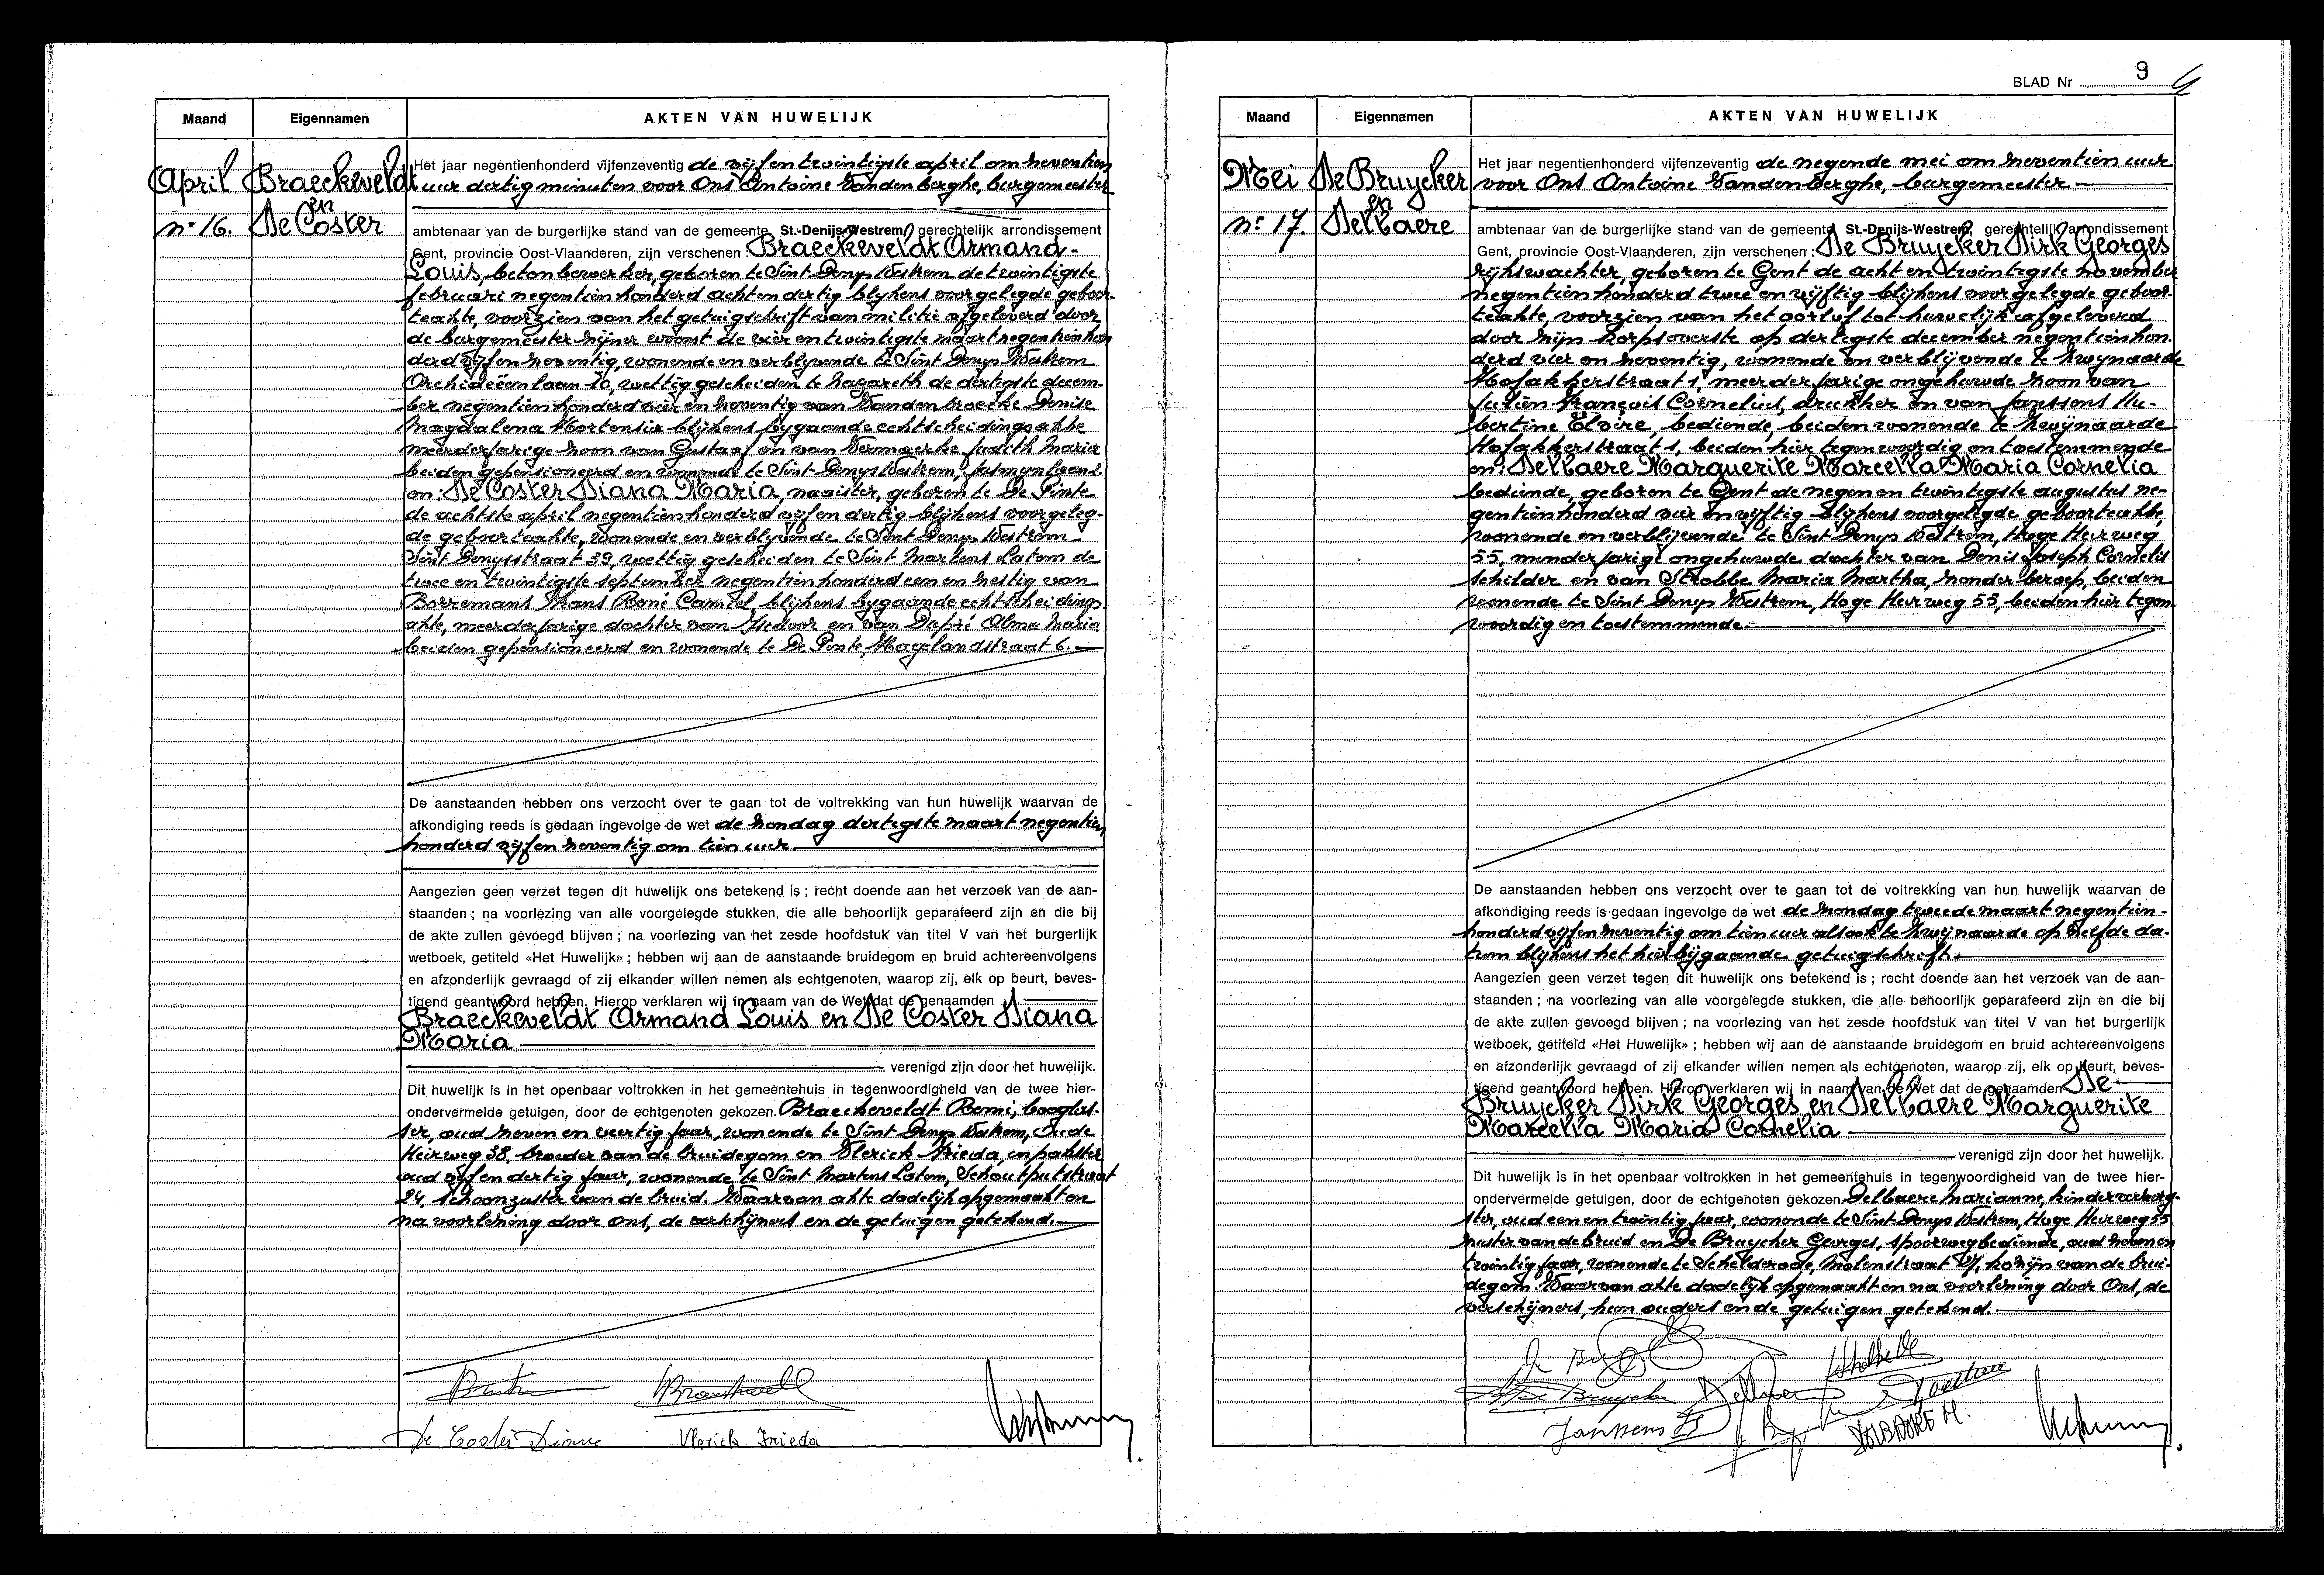 Maand Eigennamen AKTEN VAN HUWELIJK
April Braeckeveldt
en
n° 16. De Coster
Het jaar negentienhonderd vijfenzeventig de vijfentwintigste april om zeventien
uur dertig minuten voor Ons Antoine Vandenberghe, burgemeester
ambtenaar van de burgerlijke stand van de gemeente St.-Denijs-Westrem, gerechtelijk arrondissement
Gent, provincie Oost-Vlaanderen, zijn verschenen : Braeckeveldt Armand-
Louis, betonbewerker, geboren te Sint Denys Westrem de twintigste
februari negentienhonderd achtendertig blijkens voorgelegde geboor-
teakte, voorzien van het getuigschrift van militie afgeleverd door
de burgemeester zijner woonst de vierentwintigste maart negentienhon
derd vijfenzeventig, wonende en verblyvende te Sint Denys Westrem
Orchideeënlaan 10, wettig gescheiden te Nazareth de dertigste decem-
ber negentienhonderd vierenzeventig van Vandenbroecke Denise
Magdalena Hortensia blijkens bygaande echtscheidingsakte
meerderjarige zoon van Gustaaf en van Vermaerke Judith Maria
beiden gepensioneerd en wonende te Sint Denys Westrem, Jasmynlaan 2.
en: De Coster Diana Maria, naaister, geboren te De Pinte
de achtste april negentienhonderd vijfendertig blijkens voorgeleg-
de geboorteakte, wonende en verblyvende te Sint Denys Westrem
Sint Denysstraat 39, wettig gescheiden te Sint Martens Latem de
tweeentwintigste september negentienhonderd eenenzestig van
Borremans Frans René Camiel, blijkens bygaande echtscheidings
akte, meerderjarige dochter van Isedoor en van Dupré Alma Maria
beiden gepensioneerd en wonende te De Pinte, Hagelandstraat 6.
De aanstaanden hebben ons verzocht over te gaan tot de voltrekking van hun huwelijk waarvan de
afkondiging reeds is gedaan ingevolge de wet de zondag dertigste maart negentien
honderd vijfenzeventig om tien uur
Aangezien geen verzet tegen dit huwelijk ons betekend is ; recht doende aan het verzoek van de aan-
staanden ; na voorlezing van alle voorgelegde stukken, die alle behoorlijk geparafeerd zijn en die bij
de akte zullen gevoegd blijven ; na voorlezing van het zesde hoofdstuk van titel V van het burgerlijk
wetboek, getiteld «Het Huwelijk» ; hebben wij aan de aanstaande bruidegom en bruid achtereenvolgens
en afzonderlijk gevraagd of zij elkander willen nemen als echtgenoten, waarop zij, elk op beurt, beves-
tigend geantwoord hebben. Hierop verklaren wij in naam van de Wet dat de genaamden
Braeckeveldt Armand Louis en De Coster Diana
Maria
verenigd zijn door het huwelijk.
Dit huwelijk is in het openbaar voltrokken in het gemeentehuis in tegenwoordigheid van de twee hier-
ondervermelde getuigen, door de echtgenoten gekozen. Braeckeveldt Remi, booglas-
ser, oud zevenenveertig jaar, wonende te Sint Denys Westrem, Oude
Heirweg 38, broeder van de bruidegom en Vlerick Frieda, inpakster
oud vijfendertig jaar, wonende te Sint Martens Latem, Schoutputstraat
24, schoonzuster van de bruid. Waarvan akte dadelijk opgemaakt en
na voorlezing door Ons, de verschijners en de getuigen getekend.
De Coster Diane Vlerick Frieda
BLAD Nr 9
Maand Eigennamen AKTEN VAN HUWELIJK
Mei De Bruycker
en
n° 17. Delbaere
Het jaar negentienhonderd vijfenzeventig de negende mei om zeventien uur
voor Ons Antoine Vandenberghe, burgemeester
ambtenaar van de burgerlijke stand van de gemeente St.-Denijs-Westrem, gerechtelijk arrondissement
Gent, provincie Oost-Vlaanderen, zijn verschenen : De Bruycker Dirk Georges
rijkswachter, geboren te Gent de achtentwintigste november
negentienhonderd tweeenvijftig blijkens voorgelegde geboor-
teakte, voorzien van het oorlof tot huwelijk afgeleverd
door zijn korpsoverste op dertigste december negentienhon-
derd vierenzeventig, wonende en verblijvende te Zwijnaarde
Hofakkerstraat 1, meerderjarige ongehuwde zoon van
Julien François Cornelius, drukker en van Janssens Hu-
bertine Elvire, bediende, beiden wonende te Zwijnaarde
Hofakkerstraat 1, beiden hier tegenwoordig en toestemmende
en: Delbaere Marguerite Marcella Maria Cornelia
bediende, geboren te Gent de negenentwintigste augustus ne-
gentienhonderd vierenvijftig blijkens voorgelegde geboorteakte,
wonende en verblijvende te Sint Denys Westrem, Hoge Heirweg
55, minderjarige ongehuwde dochter van Denis Joseph Cornelis
schilder en van Strobbe Maria Martha, zonder beroep, beiden
wonende te Sint Denys Westrem, Hoge Heirweg 55, beiden hier tegen
woordig en toestemmende.
De aanstaanden hebben ons verzocht over te gaan tot de voltrekking van hun huwelijk waarvan de
afkondiging reeds is gedaan ingevolge de wet de zondag tweede maart negentien-
honderd vijfenzeventig om tien uur alsook te Zwijnaarde op zelfde da-
tum blijkens het hierbijgaande getuigschrift.
Aangezien geen verzet tegen dit huwelijk ons betekend is ; recht doende aan het verzoek van de aan-
staanden ; na voorlezing van alle voorgelegde stukken, die alle behoorlijk geparafeerd zijn en die bij
de akte zullen gevoegd blijven ; na voorlezing van het zesde hoofdstuk van titel V van het burgerlijk
wetboek, getiteld «Het Huwelijk» ; hebben wij aan de aanstaande bruidegom en bruid achtereenvolgens
en afzonderlijk gevraagd of zij elkander willen nemen als echtgenoten, waarop zij, elk op beurt, beves-
tigend geantwoord hebben. Hierop verklaren wij in naam van de Wet dat de genaamden De
Bruycker Dirk Georges en Delbaere Marguerite
Marcella Maria Cornelia
verenigd zijn door het huwelijk.
Dit huwelijk is in het openbaar voltrokken in het gemeentehuis in tegenwoordigheid van de twee hier-
ondervermelde getuigen, door de echtgenoten gekozen Delbaere Marianne, kinderverzorg-
ster, oud eenentwintig jaar, wonende te Sint Denys Westrem, Hoge Heirweg 55
zuster van de bruid en De Bruycker Georges, spoorwegbediende, oud zevenen
twintig jaar, wonende te Schelderode, Molenstraat, kozijn van de brui-
degom. Waarvan akte dadelijk opgemaakt en na voorlezing door Ons, de
verschijners, hun ouders en de getuigen getekend.
De Bruycker
Janssens
DELBAERE M.